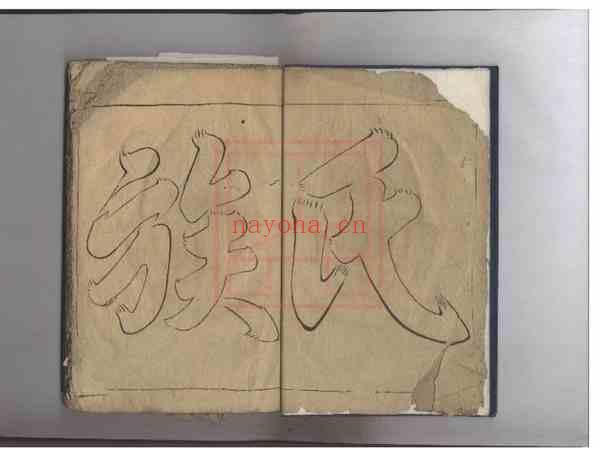 氏
族
nayona.cn